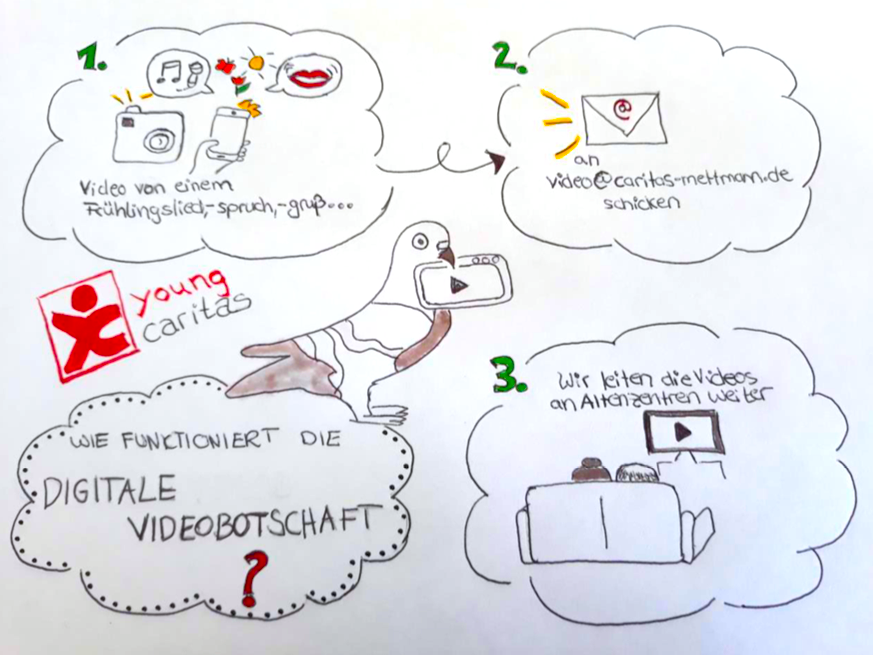 1.
Video von einem
Frühlingslied,-spruch,-gruß...
2.
@
an
video@caritas-mettmann.de
schicken
young
caritas
3.
Wir leiten die Videos
an Altenzentren weiter
WIE FUNKTIONIERT DIE
DIGITALE
VIDEOBOTSCHAFT
?